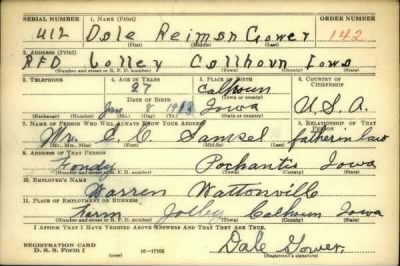 SERIAL NUMBER 1. NAME (Print) ORDER NUMBER
U12 Dale Reimon Gower 142
(First) (Middle) (Last)
2. ADDRESS (Print)
RFD Lolley Callhoun Iowa
(Number and street or R. F. D. number) (Town) (County) (State)
3. TELEPHONE 4. AGE IN YEARS 5. PLACE OF BIRTH 6. COUNTRY OF CITIZENSHIP
27 Calhoun
DATE OF BIRTH (Town or county)
Jan 8 Iowa U.S.A.
(Exchange) (Number) (Mo.) (Day) (Yr.) (State or country)
7. NAME OF PERSON WHO WILL ALWAYS KNOW YOUR ADDRESS 8. RELATIONSHIP OF THAT PERSON
Mr. C. C. Samsel father in law
(Mr., Mrs., Miss) (First) (Middle) (Last)
9. ADDRESS OF THAT PERSON
Fondy Pochantus Iowa
(Number and street or R. F. D. number) (Town) (County) (State)
10. EMPLOYER'S NAME
Warren Wattonville
11. PLACE OF EMPLOYMENT OR BUSINESS
Farm Jolley Calhoun Iowa
(Number and street or R. F. D. number) (Town) (County) (State)
I AFFIRM THAT I HAVE VERIFIED ABOVE ANSWERS AND THAT THEY ARE TRUE.
REGISTRATION CARD
D. S. S. Form 1 16-17105 Dale Gower
(Registrant's signature)